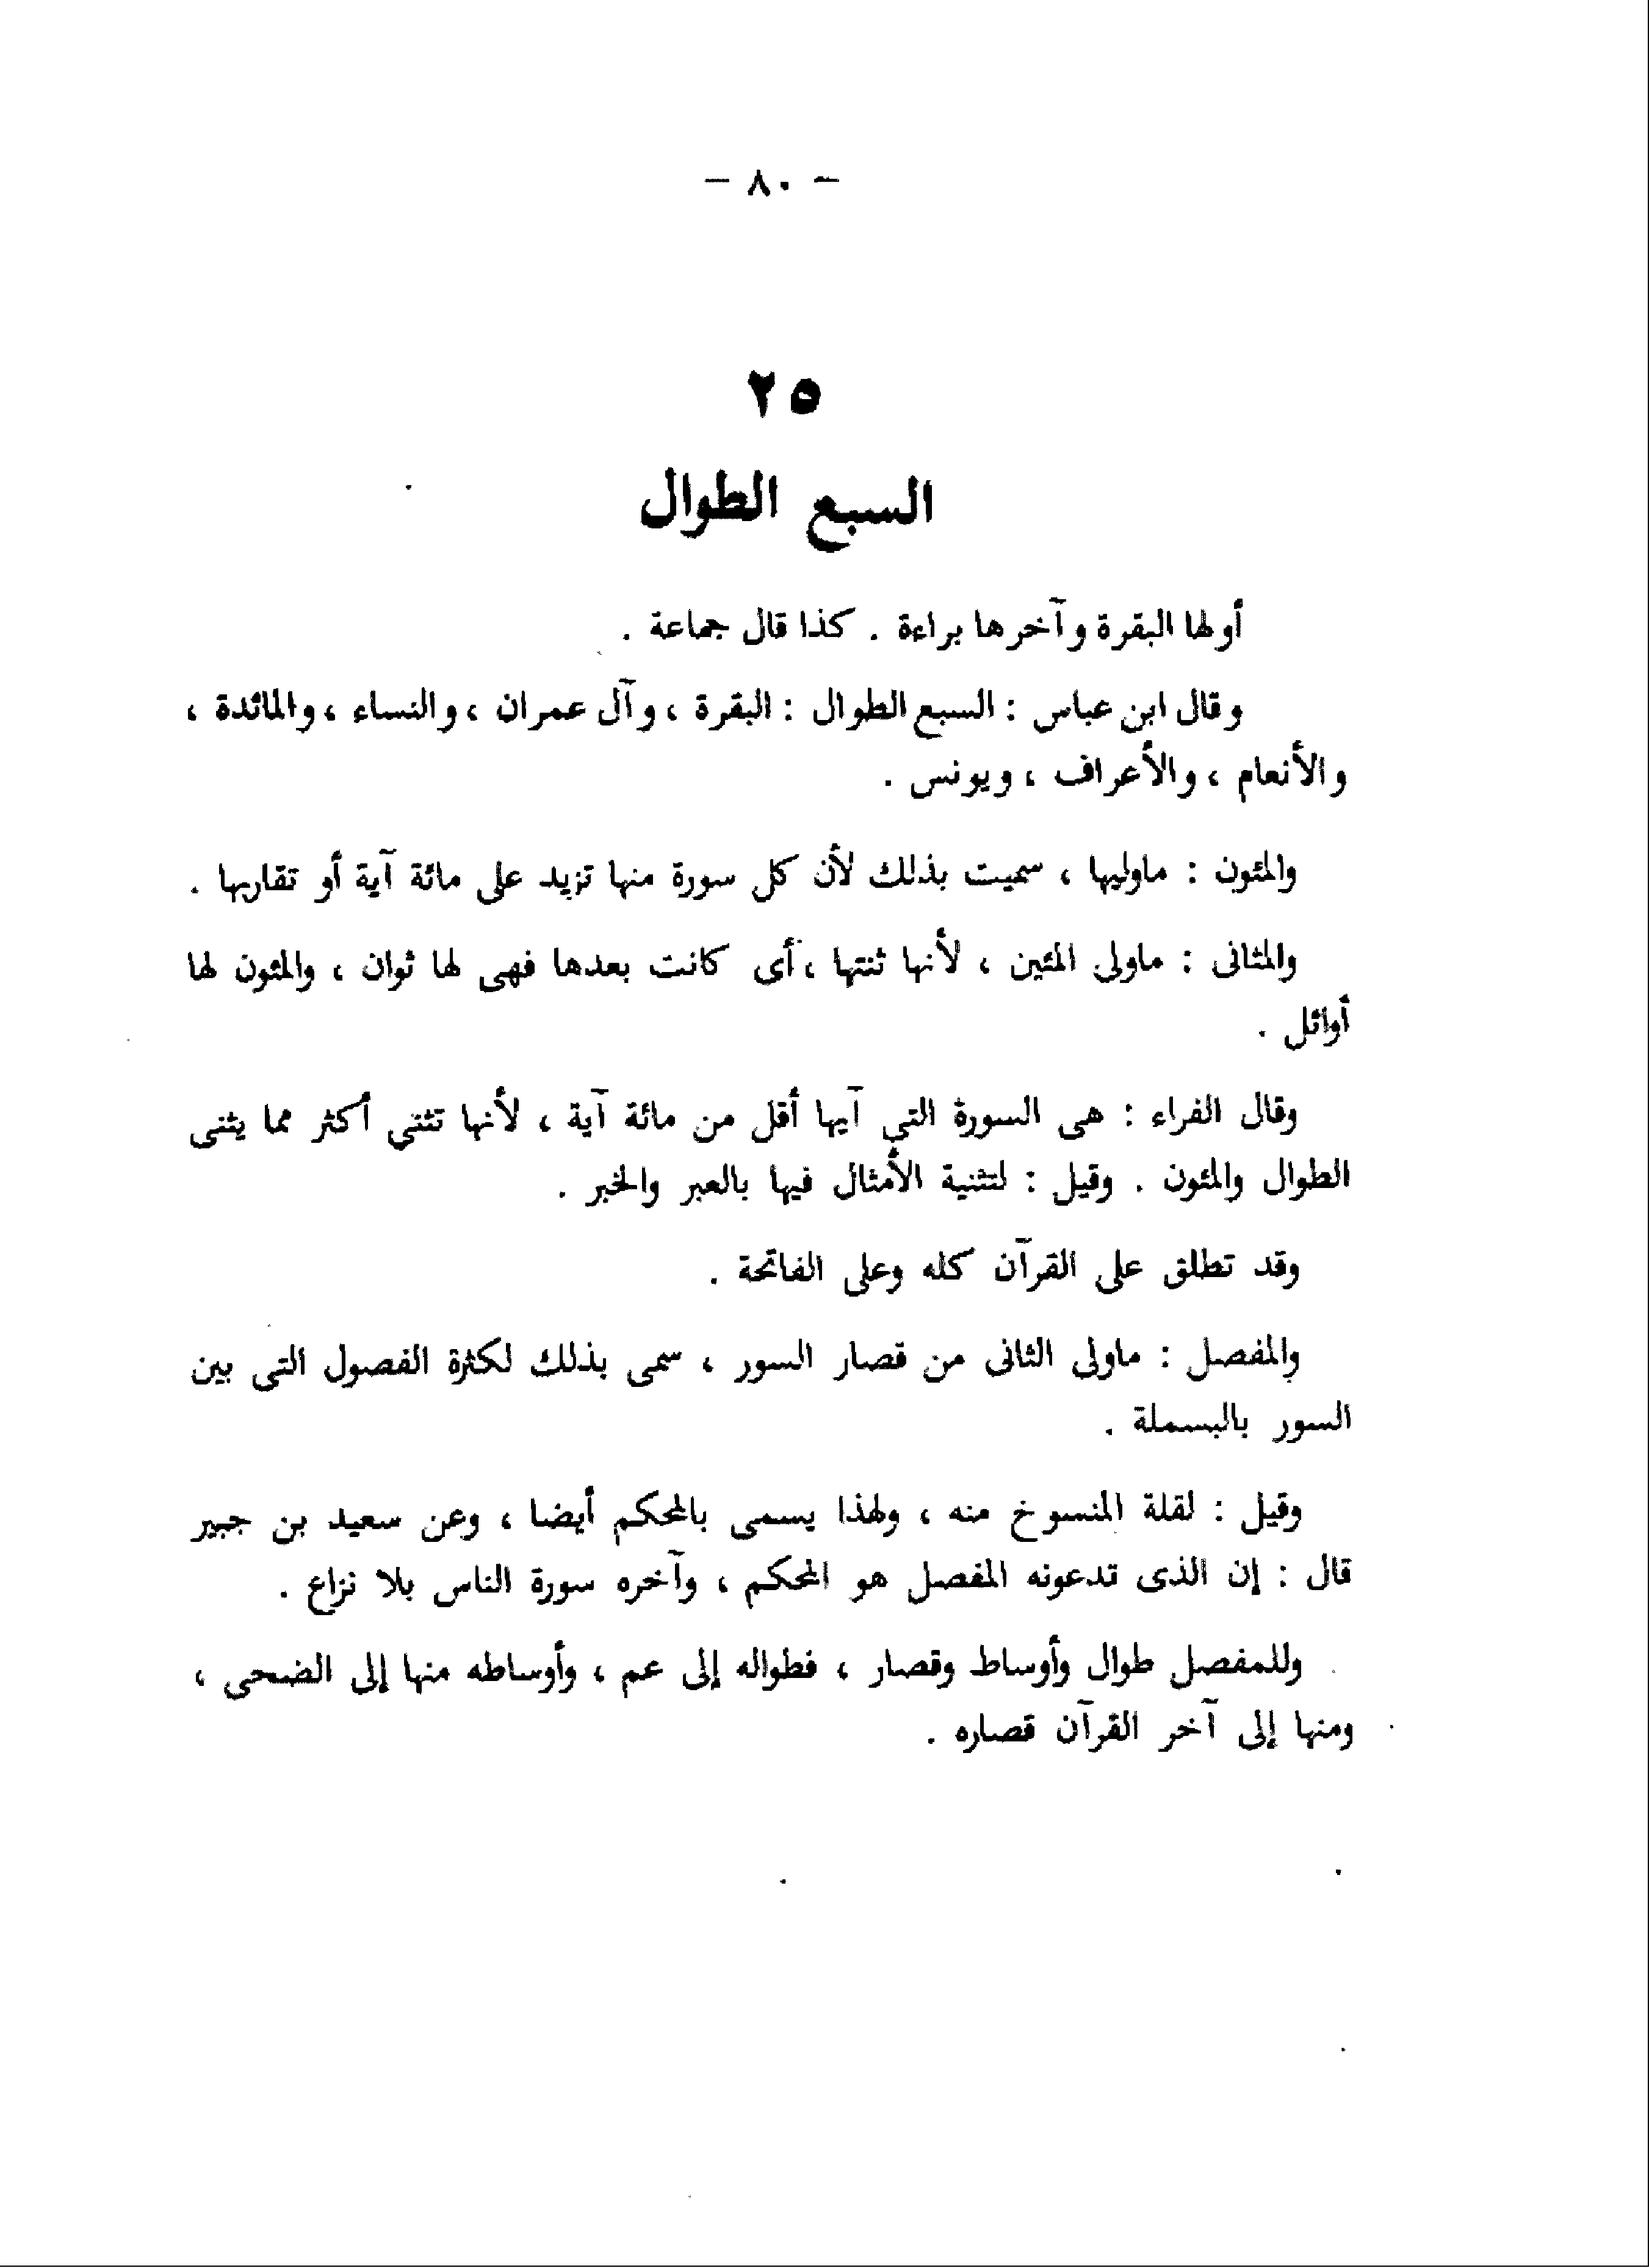 – ٨٠ –
٢٥
السبع الطوال
أولها البقرة وآخرها براءة . كذا قال جماعة .
وقال ابن عباس : السبع الطوال : البقرة ، وآل عمران ، والنساء ، والمائدة ،
والأنعام ، والأعراف ، ويونس .
والمئون : ماوليها ، سميت بذلك لأن كل سورة منها تزيد على مائة آية أو تقاربها .
والمثانى : ماولى المئين ، لأنها ثنتها ، أى كانت بعدها فهى لها ثوان ، والمئون لها
أوائل .
وقال الفراء : هى السورة التي آيها أقل من مائة آية ، لأنها تثني أكثر مما يثنى
الطوال والمئون . وقيل : لتثنية الأمثال فيها بالعبر والخبر .
وقد تطلق على القرآن كله وعلى الفاتحة .
والمفصل : ماولى الثانى من قصار السور ، سمى بذلك لكثرة الفصول التى بين
السور بالبسملة .
وقيل : لقلة المنسوخ منه ، ولهذا يسمى بالمحكم أيضا ، وعن سعيد بن جبير
قال : إن الذى تدعونه المفصل هو المحكم ، وآخره سورة الناس بلا نزاع .
وللمفصل طوال وأوساط وقصار ، فطواله إلى عم ، وأوساطه منها إلى الضحى ،
ومنها إلى آخر القرآن قصاره .